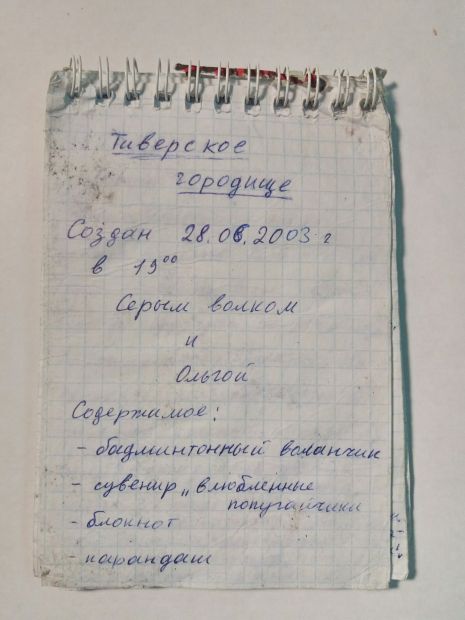 Тиверское
городище
Создан 28.06.2003 г
в 19⁰⁰
Серым волком
и
Ольгой
Содержимое:
- бадминтонный воланчик
- сувенир „влюблённые
попугайчики
- блокнот
- карандаш